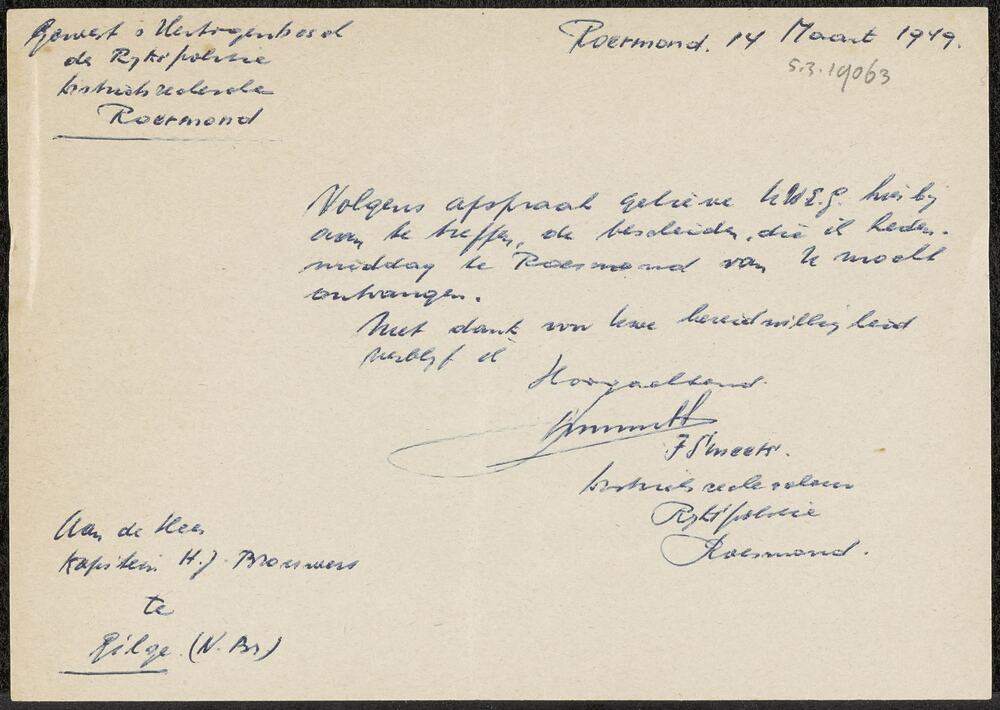 Gewest s Hertogenbosch
de Rijkspolitie
districtsrecherche
Roermond
Roermond. 14 Maart 1949.
5.3.19063
Volgens afspraak gelieve UWE.G. hierbij
aan te treffen, de bescheiden, die ik heden-
middag te Roermond van U mocht
ontvangen.
Met dank voor Uwe bereidwilligheid
verblijf ik
Hoogachtend.
J Smeets.
districtsrechercheur
Rijkspolitie
Roermond.
Aan de Heer
Kapitein H.J. Brouwers
te
Rilge (N. Br)